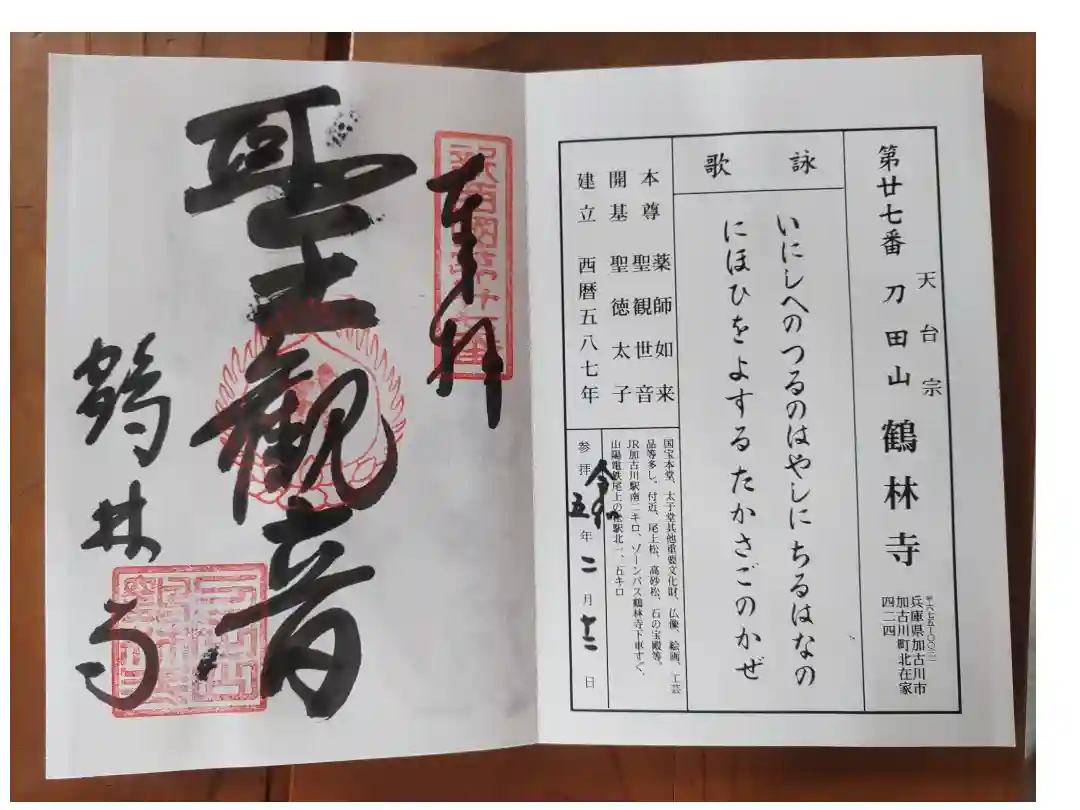 第廿七番 刀田山 鶴林寺
天台宗
兵庫県加古川市
加古川町北在家
四二四
詠歌
いにしへのつるのはやしにちるはなの
にほひをよするたかさごのかぜ
本尊 薬師如来
聖観世音
開基 聖徳太子
建立 西暦五八七年
国宝本堂、太子堂其他重要文化財、仏像、絵画、工芸
品等多し。付近、尾上松、高砂松、石の宝殿等。
JR加古川駅南二キロ、ゾーンバス鶴林寺下車すぐ、
山陽電鉄尾上の松駅北一、五キロ
参拝 令和五年二月十二日
奉拝
聖観音
鶴林寺